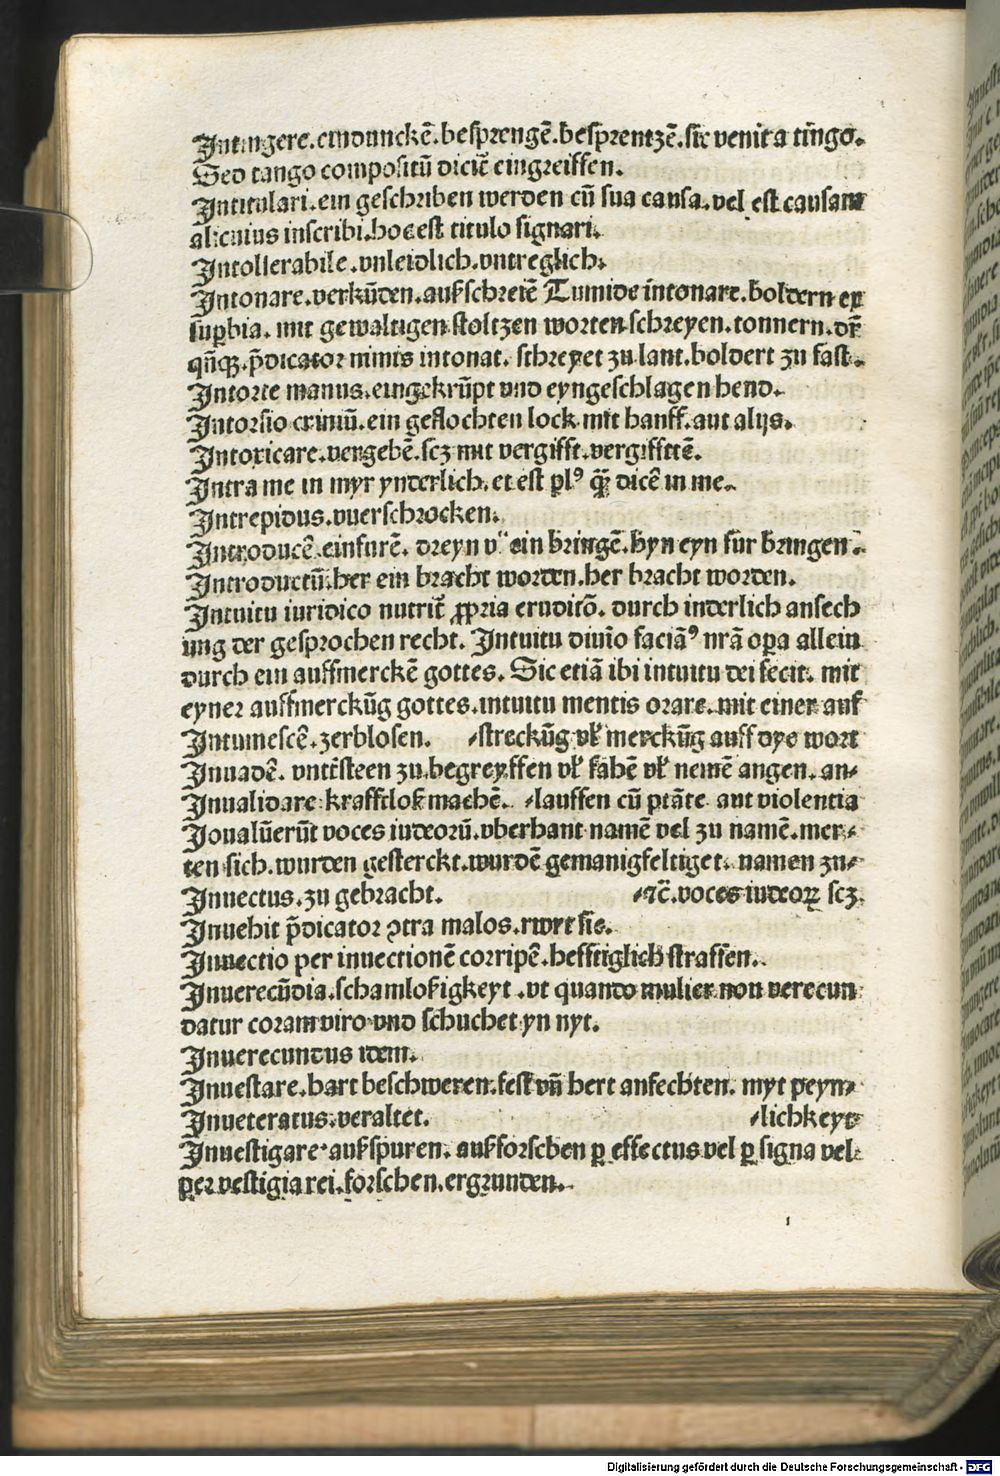 Intingere. eindunckē. besprengē. besprentzē. sic venit a tingo.
Sed tango compositū dicit̄ eingreiffen.
Intitulari. ein geschriben werden cū sua causa. vel est causam
alicuius inscribi. hoc est titulo signari.
Intollerabile. vnleidlich. vntreglich.
Intonare. verkūden. aufschreiē Tumide intonare. boldern ex
suꝑbia. mit gewaltigen stoltzen worten schreyen. tonnern. dr̄
qn̄qꝫ. p̄dicator nimis intonat. schreyet zu laut. boldert zu fast.
Intorte manus. eingekrūpt vnd eyngeschlagen hend.
Intorsio criniū. ein geflochten lock mit hanff. aut alijs.
Intoxicare. vergebē. scꝫ mit vergifft. vergifftē.
Intra me in myr ynderlich. et est pl⁹ q̄ꝫ dicē in me.
Intrepidus. vnerschrocken.
Introducē. einfurē. dreyn v̄ ein bringē. hyn eyn fur bringen.
Introductū. her ein bracht worden. her bracht worden.
Intuitu iuridico nutrit̄ ꝓpria eruditō. durch inderlich ansech
ung der gesprochen recht. Intuitu diuīo faciā⁹ nrā oꝑa allein
durch ein auffmerckē gottes. Sic etiā ibi intuitu dei fecit. mit
eyner auffmerckūg gottes. intuitu mentis orare. mit einer auf
Intumescē. zerblosen. ⸗streckūg vł merckūg auff dye wort
Inuadē. vntt̄steen zu begreyffen vł fahē vł nemē angen. an⸗
Inualidare krafftloß machē. ⸗lauffen cū ptāte aut violentia
Inualuerūt voces iudeorū. vberhant namē vel zu namē. mer⸗
ten sich. wurden gesterckt. wurdē gemanigfeltiget. namen zu⸗
Inuectus. zu gebracht. ⸗⁊c̄. voces iudeoꝝ scꝫ.
Inuehit p̄dicator ꝯtra malos. rurt sie.
Inuectio per inuectionē corripē. hefftiglich straffen.
Inuerecūdia. schamlosigkeyt. vt quando mulier non verecun
datur coram viro vnd schuchet yn nyt.
Inuerecundus idem.
Inuestare. hart beschweren. fest vn̄ hert anfechten. myt peyn⸗
Inueteratus. veraltet. ⸗lichkeyt
Inuestigare. aufspuren. aufforschen ꝑ effectus vel ꝑ signa vel
per vestigia rei. forschen. ergrunden.
1
Digitalisierung gefördert durch die Deutsche Forschungsgemeinschaft - DFG